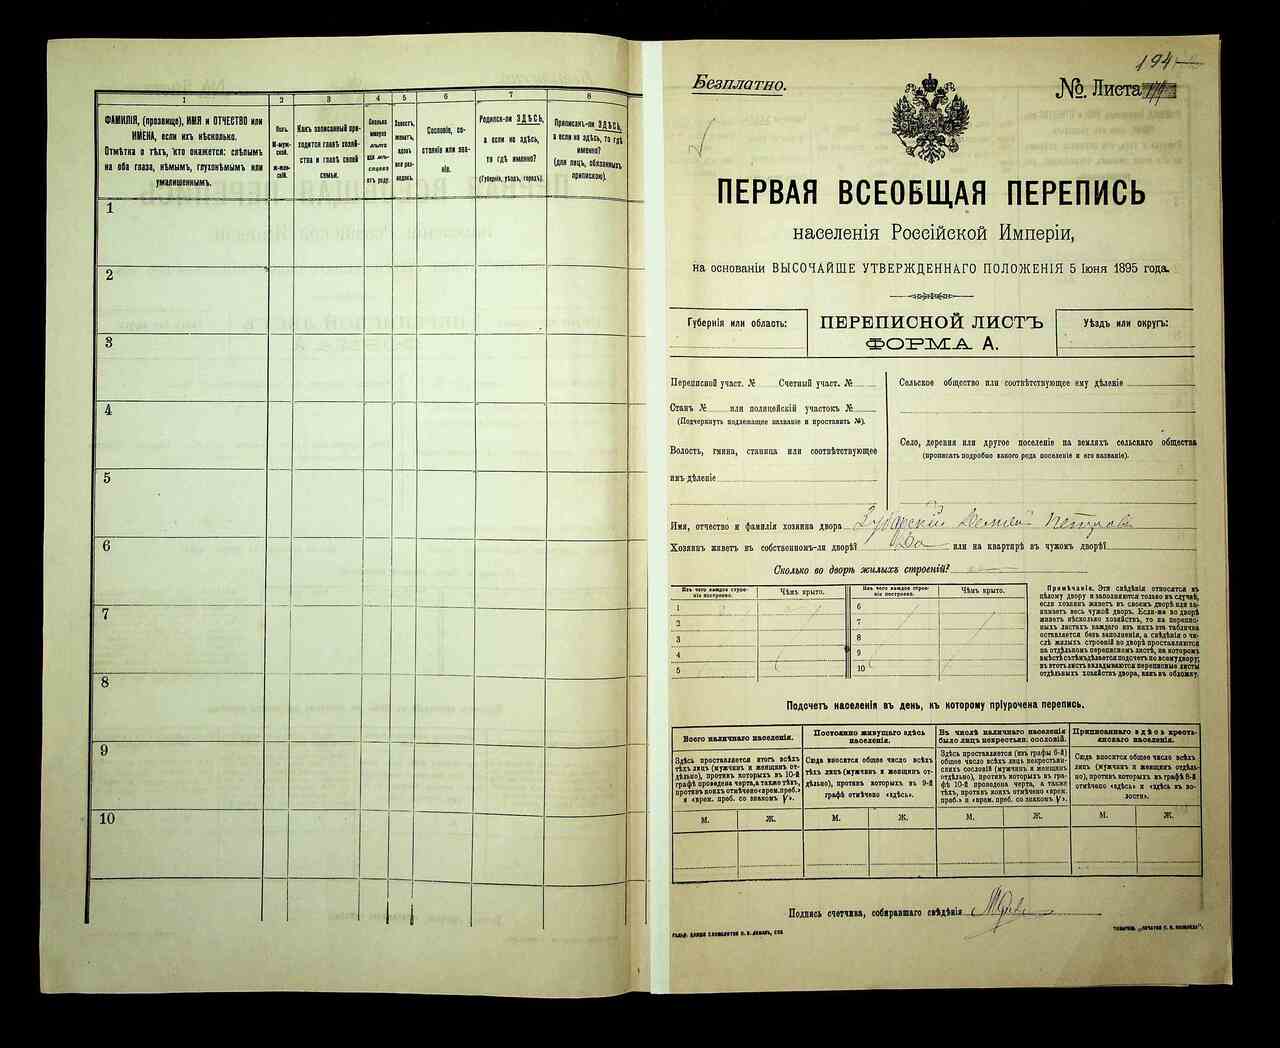 1
2
3
4
5
6
7
8
ФАМИЛІЯ, (прозвище), ИМЯ и ОТЧЕСТВО или
ИМЕНА, если ихъ нѣсколько.
Отмѣтка о тѣхъ, кто окажется: слѣпымъ
на оба глаза, нѣмымъ, глухонѣмымъ или
умалишеннымъ.
Полъ.
М-муж-
ской.
Ж-жен-
скій.
Какъ записанный при-
ходится главѣ хозяй-
ства и главѣ своей
семьи.
Сколько
минуло
лѣтъ
или мѣ-
сяцевъ
отъ роду.
Холостъ,
женатъ,
вдовъ
или раз-
веденъ.
Сословіе, со-
стояніе или зва-
ніе.
Родился-ли ЗДѢСЬ,
а если не здѣсь,
то гдѣ именно?
(Губернія, уѣздъ, городъ).
Приписанъ-ли ЗДѢСЬ,
а если не здѣсь, то гдѣ
именно?
(для лицъ, обязанныхъ
припискою).
1
2
3
4
5
6
7
8
9
10
194
Безплатно.
№ Листа
ПЕРВАЯ ВСЕОБЩАЯ ПЕРЕПИСЬ
населенія Россійской Имперіи,
на основаніи ВЫСОЧАЙШЕ УТВЕРЖДЕННАГО ПОЛОЖЕНІЯ 5 Іюня 1895 года.
Губернія или область:
ПЕРЕПИСНОЙ ЛИСТЪ
ФОРМА А.
Уѣздъ или округъ:
Переписной участ. № Счетный участ. №
Станъ № или полицейскій участокъ №
(Подчеркнуть надлежащее названіе и проставить №).
Волость, гмина, станица или соотвѣтствующее
имъ дѣленіе
Сельское общество или соотвѣтствующее ему дѣленіе
Село, деревня или другое поселеніе на земляхъ сельскаго общества
(прописать подробно какого рода поселеніе и его названіе).
Имя, отчество и фамилія хозяина двора
Хозяинъ живетъ въ собственномъ-ли дворѣ? Да или на квартирѣ въ чужомъ дворѣ?
Сколько во дворѣ жилыхъ строеній?
Изъ чего каждое строе-
ніе построено.
Чѣмъ крыто.
Изъ чего каждое строе-
ніе построено.
Чѣмъ крыто.
1
2
3
4
5
6
7
8
9
10
Примѣчаніе. Эти свѣдѣнія относятся къ
цѣлому двору и заполняются только въ случаѣ,
если хозяинъ живетъ въ своемъ дворѣ или за-
нимаетъ весь чужой дворъ. Если-же во дворѣ
живетъ нѣсколько хозяйствъ, то на перепис-
ныхъ листахъ каждаго изъ нихъ эта табличка
оставляется безъ заполненія, а свѣдѣнія о чи-
слѣ жилыхъ строеній во дворѣ проставляются
на отдѣльномъ переписномъ листѣ, на которомъ
вмѣстѣ затѣмъ дѣлается подсчетъ по всему двору;
въ этотъ листъ вкладываются переписные листы
отдѣльныхъ хозяйствъ двора, какъ въ обложку.
Подсчетъ населенія въ день, къ которому пріурочена перепись.
Всего наличнаго населенія.
Постоянно живущаго здѣсь
населенія.
Въ числѣ наличнаго населенія
было лицъ некрестьян. сословій.
Приписаннаго здѣсь кресть-
янскаго населенія.
Здѣсь проставляется итогъ всѣхъ
тѣхъ лицъ (мужчинъ и женщинъ от-
дѣльно), противъ которыхъ въ 10-й
графѣ проведена черта, а также тѣхъ,
противъ коихъ отмѣчено «врем. преб.»
и «врем. преб. со знакомъ V».
Сюда вносится общее число всѣхъ
тѣхъ лицъ (мужчинъ и женщинъ от-
дѣльно), противъ которыхъ въ 9-й
графѣ отмѣчено «здѣсь».
Здѣсь проставляется (изъ графы 6-й)
общее число всѣхъ лицъ некрестьян-
скихъ сословій (мужчинъ и женщинъ
отдѣльно), противъ которыхъ въ гра-
фѣ 10-й проведена черта, а также
тѣхъ, противъ коихъ отмѣчено «врем.
преб.» и «врем. преб. со знакомъ V».
Сюда вносится общее число всѣхъ
лицъ (мужчинъ и женщинъ отдѣль-
но), противъ которыхъ въ графѣ 8-й
отмѣчено «здѣсь» и «здѣсь въ во-
лости».
М. Ж. М. Ж. М. Ж. М. Ж.
Подпись счетчика, собиравшаго свѣдѣнія